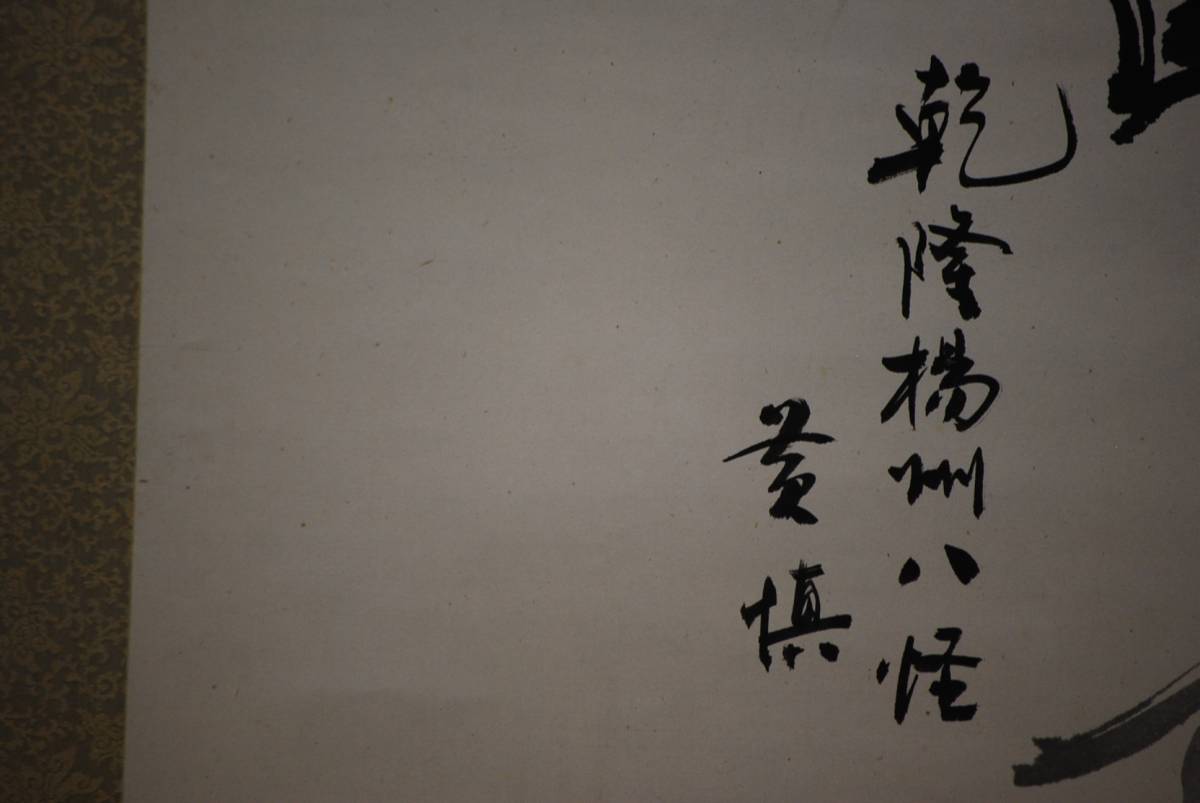 乾隆楊州八怪
黄慎